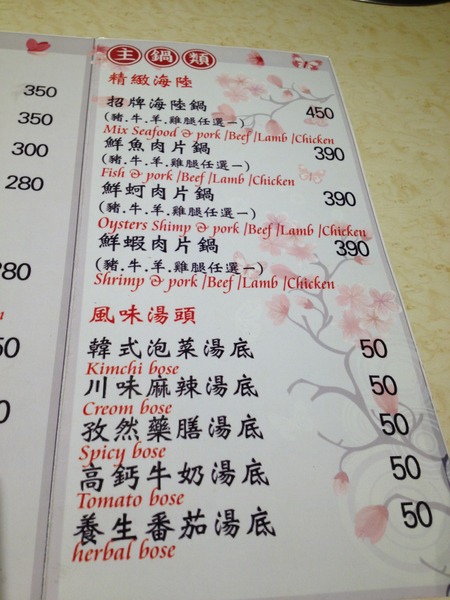 350
350
300
280
280
50
0
主鍋類
精緻海陸
招牌海陸鍋 450
(豬.牛.羊.雞腿任選一)
Mix Seafood & pork /Beef /Lamb /Chicken
鮮魚肉片鍋 390
(豬.牛.羊.雞腿任選一)
Fish & pork /Beef /Lamb /Chicken
鮮蚵肉片鍋 390
(豬.牛.羊.雞腿任選一)
Oysters Shimp & pork /Beef /Lamb /Chicken
鮮蝦肉片鍋 390
(豬.牛.羊.雞腿任選一)
Shrimp & pork /Beef /Lamb /Chicken
風味湯頭
韓式泡菜湯底 50
Kimchi bose
川味麻辣湯底 50
Creom bose
孜然藥膳湯底 50
Spicy bose
高鈣牛奶湯底 50
Tomato bose
養生番茄湯底 50
herbal bose